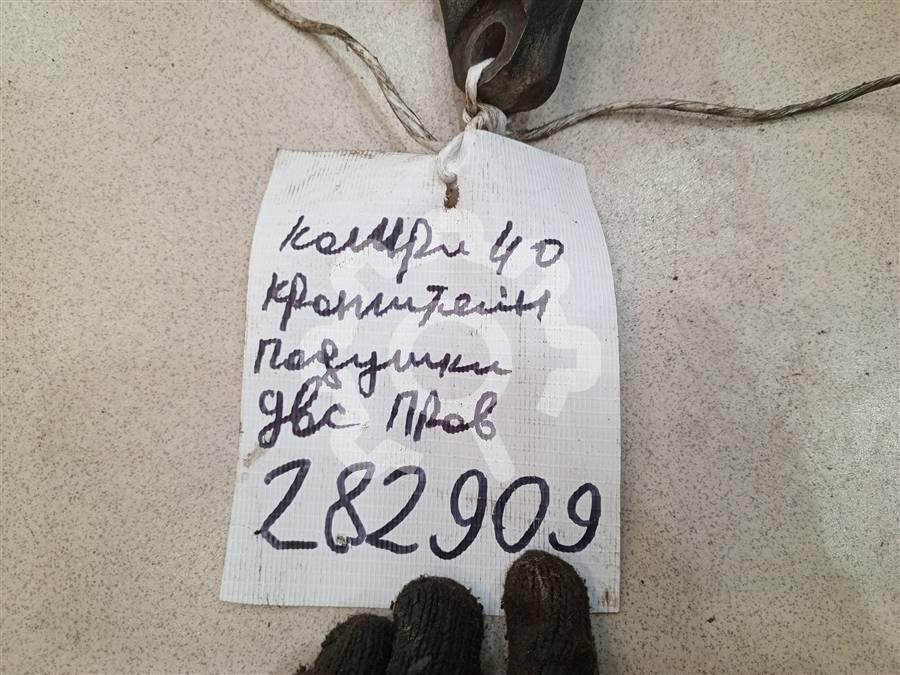 Камри 40
Кронштейн
Подушки
ДВС Прав
282909